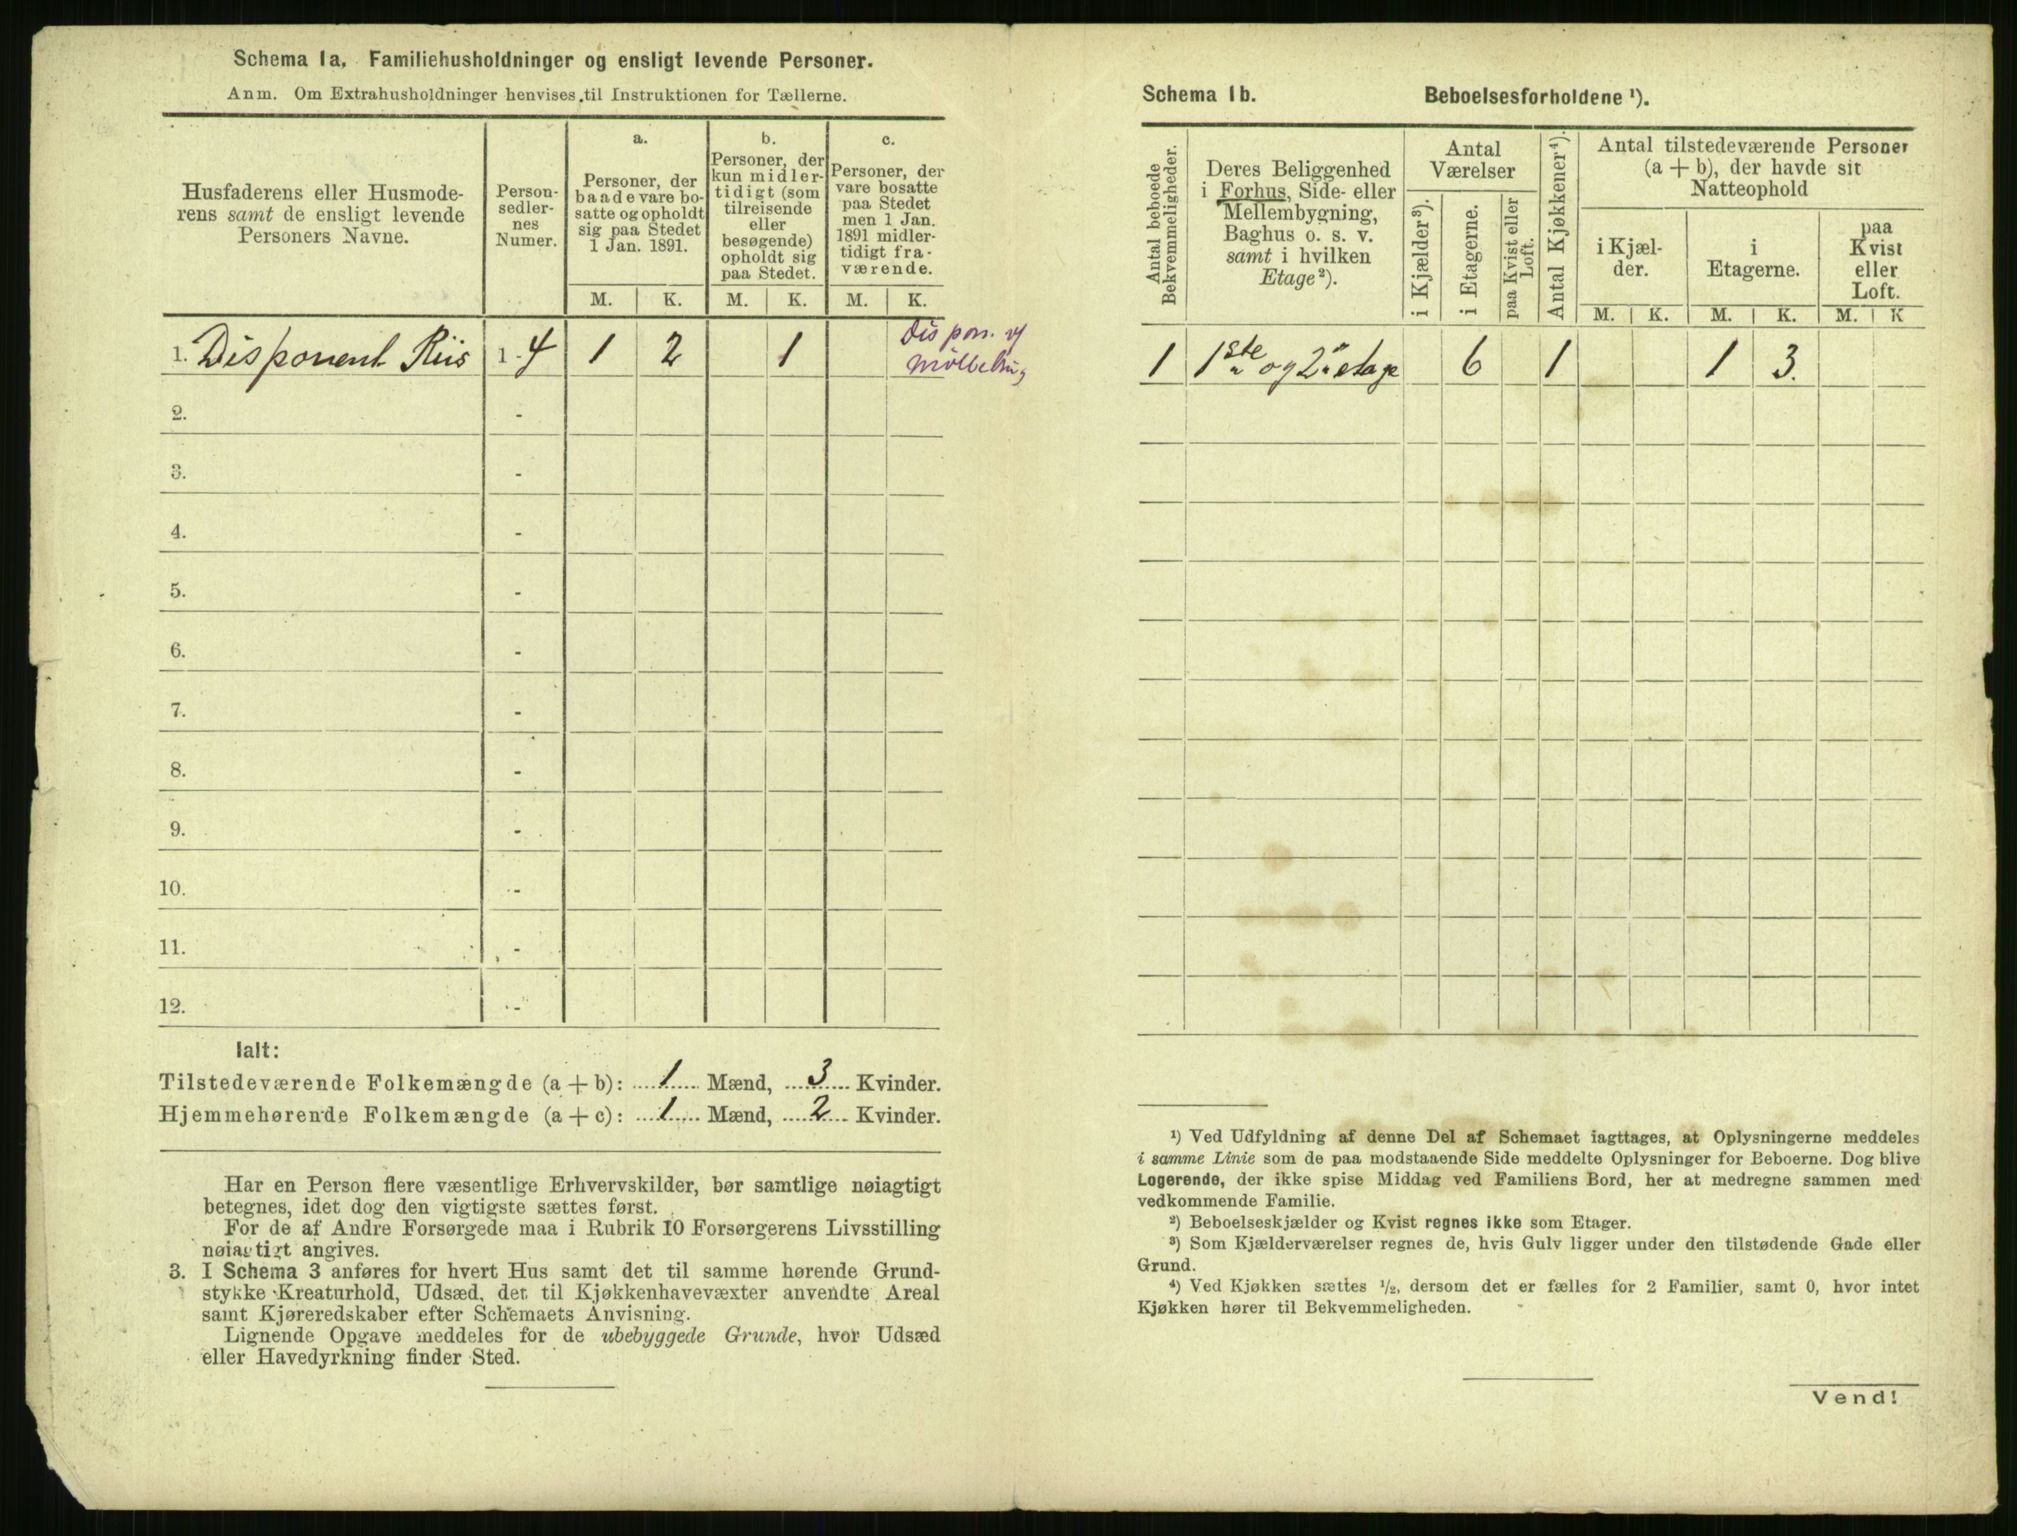 Schema 1a. Familiehusholdninger og ensligt levende Personer.
Anm. Om Extrahusholdninger henvises til Instruktionen for Tællerne.
Husfaderens eller Husmode-
rens samt de ensligt levende
Personers Navne.
Person-
sedler-
nes
Numer.
a.
Personer, der
baade vare bo-
satte og opholdt
sig paa Stedet
1 Jan. 1891.
b.
Personer, der
kun midler-
tidigt (som
tilreisende
eller
besøgende)
opholdt sig
paa Stedet.
c.
Personer, der
vare bosatte
paa Stedet
men 1 Jan.
1891 midler-
tidigt fra-
værende.
M. K. M. K. M. K.
1. Disponent Riis 1 - 4 1 2 1
Dispon. v
2. -
3. -
4. -
5. -
6. -
7. -
8. -
9. -
10. -
11. -
12. -
Ialt:
Tilstedeværende Folkemængde (a + b): 1 Mænd, 3 Kvinder.
Hjemmehørende Folkemængde (a + c): 1 Mænd, 2 Kvinder.
Har en Person flere væsentlige Erhvervskilder, bør samtlige nøiagtigt
betegnes, idet dog den vigtigste sættes først.
For de af Andre Forsørgede maa i Rubrik 10 Forsørgerens Livsstilling
nøiagtigt angives.
3. I Schema 3 anføres for hvert Hus samt det til samme hørende Grund-
stykke Kreaturhold, Udsæd, det til Kjøkkenhavevæxter anvendte Areal
samt Kjøreredskaber efter Schemaets Anvisning.
Lignende Opgave meddeles for de ubebyggede Grunde, hvor Udsæd
eller Havedyrkning finder Sted.
Schema 1b. Beboelsesforholdene ¹).
Antal beboede
Bekvemmeligheder.
Deres Beliggenhed
i Forhus, Side- eller
Mellembygning,
Baghus o. s. v.
samt i hvilken
Etage²).
Antal
Værelser
i Kjælder³).
i Etagerne.
paa Kvist eller
Loft.
Antal Kjøkkener⁴).
Antal tilstedeværende Personer
(a + b), der havde sit
Natteophold
i Kjæl-
der.
i
Etagerne.
paa
Kvist
eller
Loft.
M. K. M. K. M. K
1 1ste og 2 etage 6 1 1 3.
¹) Ved Udfyldning af denne Del af Schemaet iagttages, at Oplysningerne meddeles
i samme Linie som de paa modstaaende Side meddelte Oplysninger for Beboerne. Dog blive
Logerende, der ikke spise Middag ved Familiens Bord, her at medregne sammen med
vedkommende Familie.
²) Beboelseskjælder og Kvist regnes ikke som Etager.
³) Som Kjælderværelser regnes de, hvis Gulv ligger under den tilstødende Gade eller
Grund.
⁴) Ved Kjøkken sættes ½, dersom det er fælles for 2 Familier, samt 0, hvor intet
Kjøkken hører til Bekvemmeligheden.
Vend!